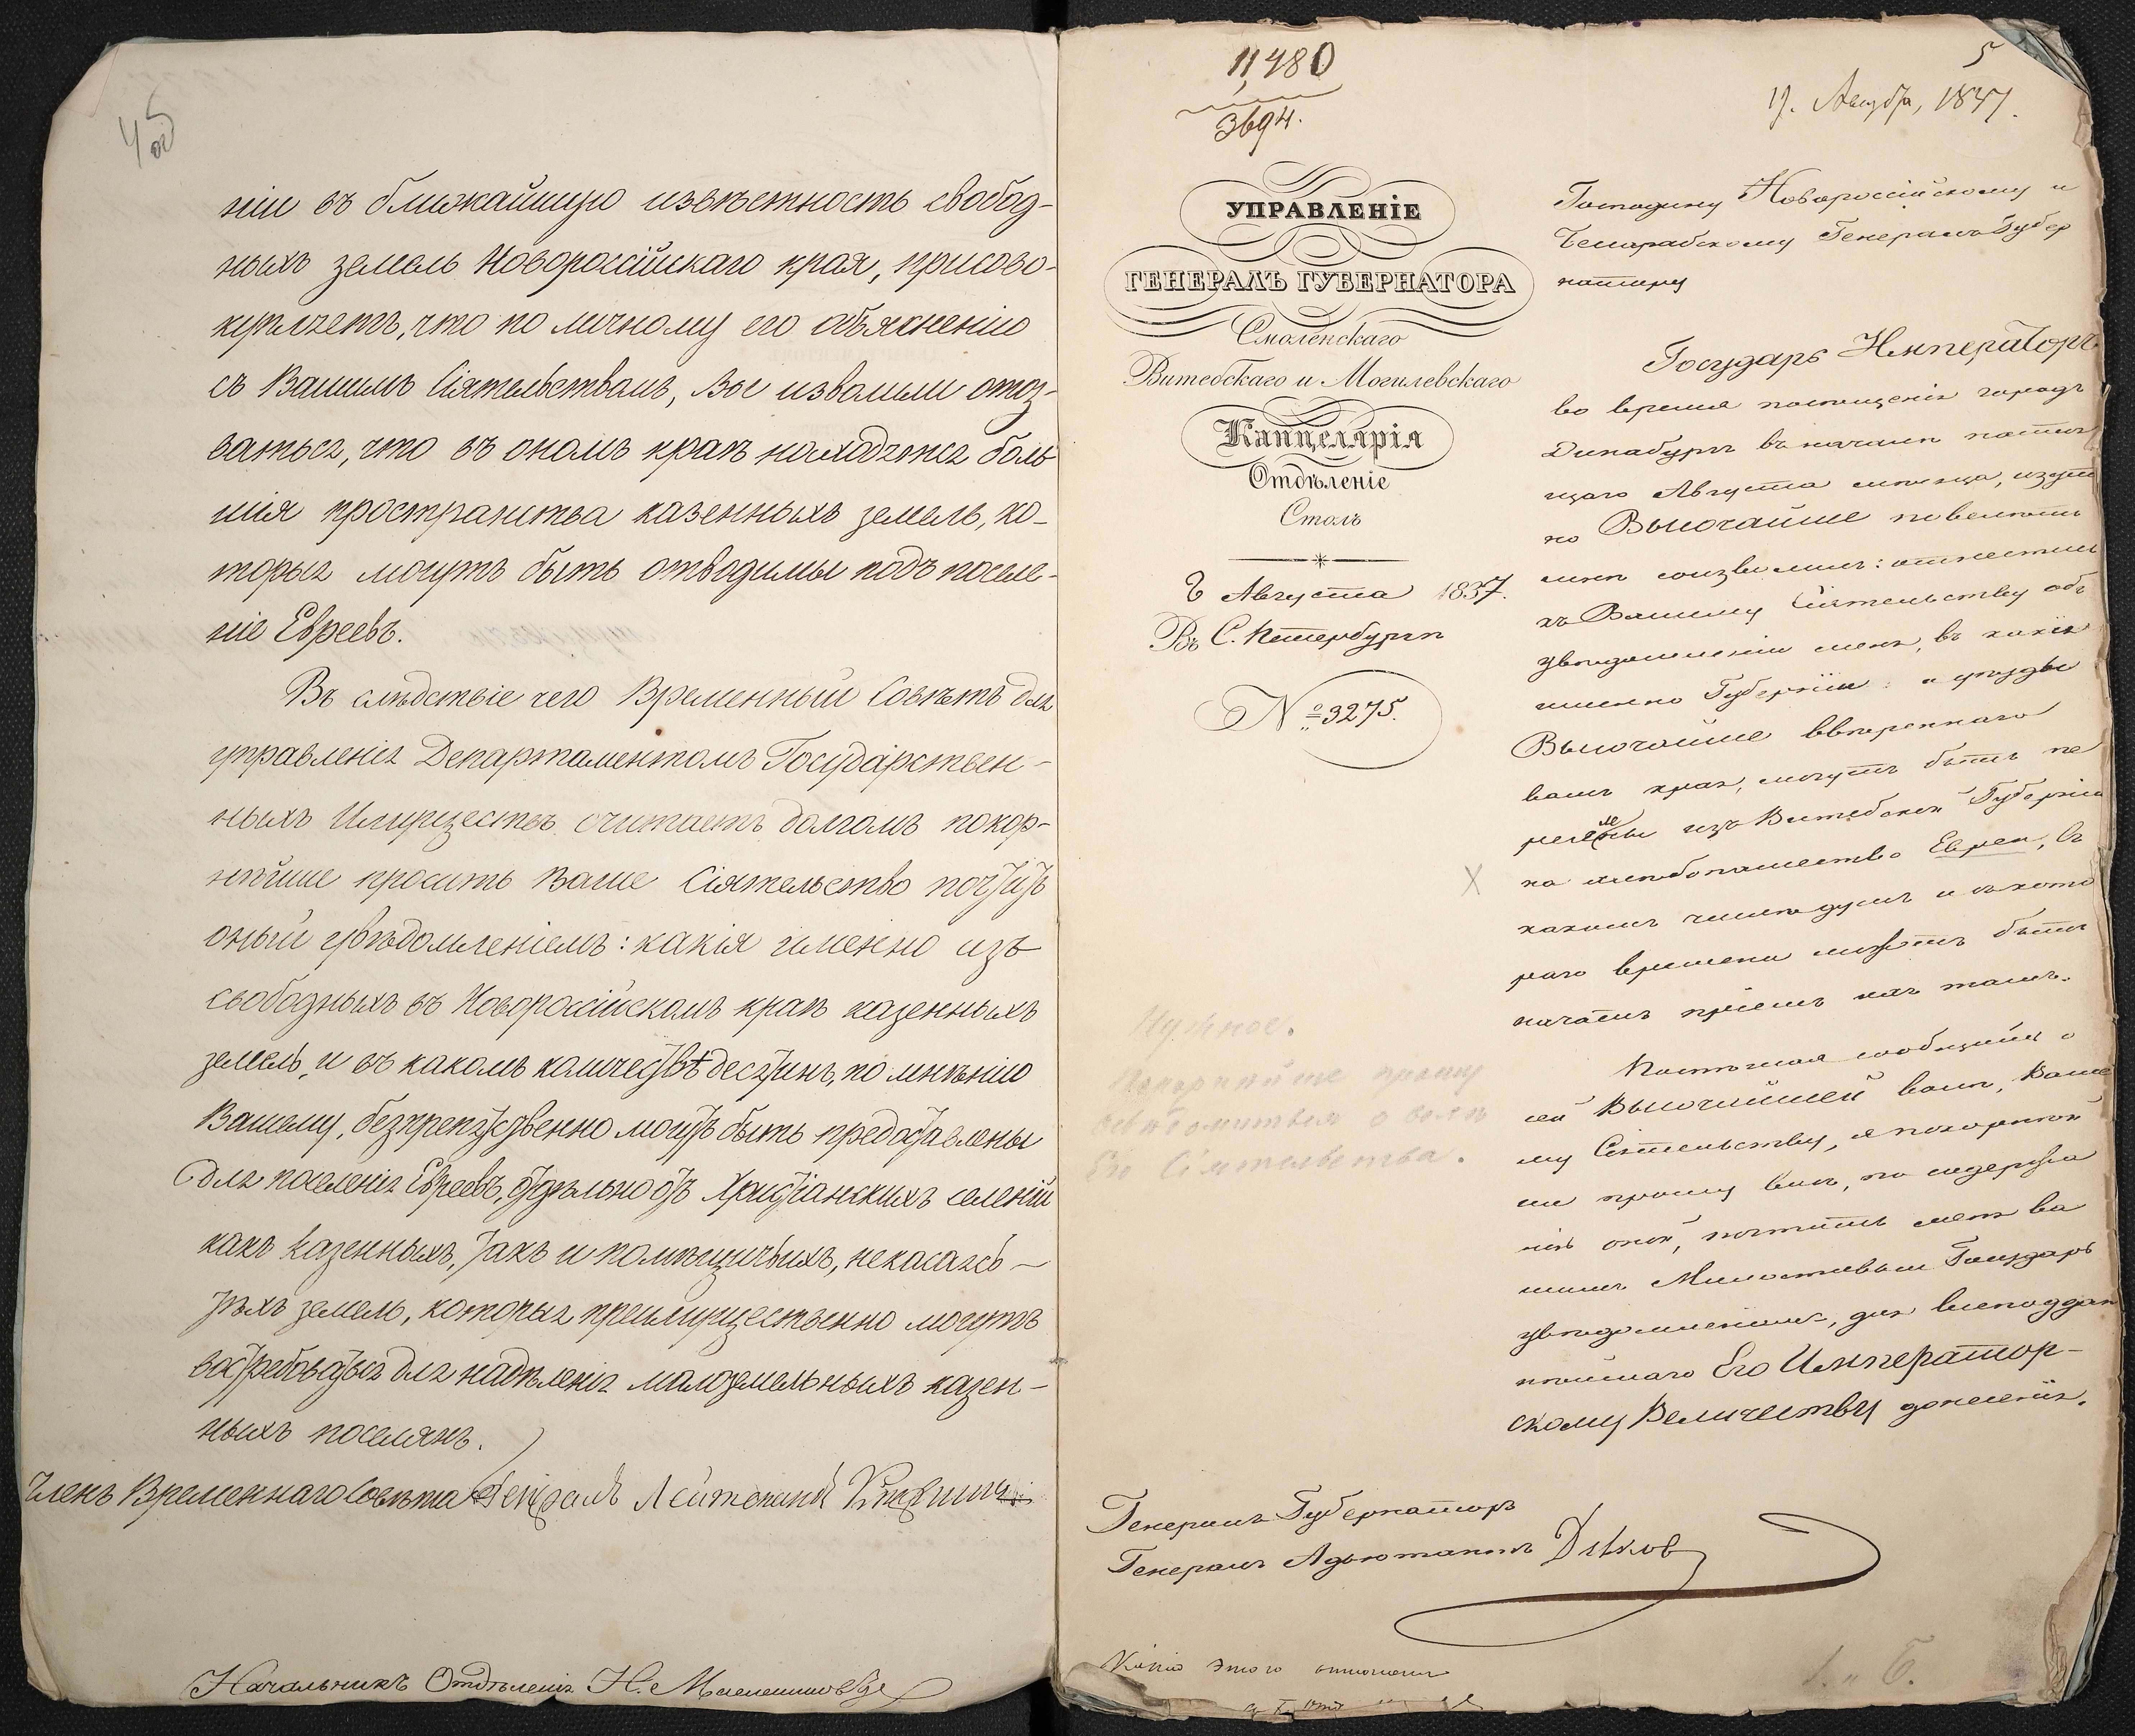 4 об
ніи въ ближайшую извѣстность свобод-
ныхъ земель Новороссійскаго края, присово-
купляетъ, что по личному его объясненію
съ Вашимъ Сіятельствомъ, Вы изволили отоз-
ваться, что въ ономъ краѣ находятся боль
шія пространства казенныхъ земель, ко-
торыя могутъ быть отводимы подъ поселе-
ніе Евреевъ.
Въ слѣдствіе чего Временный Совѣтъ для
управленія Департаментомъ Государствен-
ныхъ Имуществъ считаетъ долгомъ покор-
нѣйше просить Ваше Сіятельство почтить
оный увѣдомленіемъ: какія именно изъ
свободныхъ въ Новороссійскомъ краѣ казенныхъ
земель, и въ какомъ количествѣ десятинъ, по мнѣнію
Вашему, безпрепятственно могутъ быть предоставлены
для поселенія Евреевъ, отдѣльно отъ Христіанскихъ селеній
какъ казенныхъ, такъ и помѣщичьихъ, не касаясь
тѣхъ земель, которыя преимущественно могутъ
востребоваться для надѣленія малоземельныхъ казен-
ныхъ поселянъ.
Членъ Временнаго Совѣта Генералъ Лейтенантъ
Начальникъ Отдѣленія Н.
11,480
3694.
5
19. Августа, 1837.
УПРАВЛЕНІЕ
ГЕНЕРАЛЪ ГУБЕРНАТОРА
Смоленскаго
Витебскаго и Могилевскаго
Канцелярія
Отдѣленіе
Столъ
Августа 1837.
Въ С. Петербургѣ
№ 3275.
Господину Новороссійскому и
Бессарабскому Генералъ Губер
натору
Государь Императоръ
во время посѣщенія города
Динабурга въ началѣ настоя
щаго Августа мѣсяца, изустно
но Высочайше повелѣть
мнѣ соизволилъ: отнестись
къ Вашему Сіятельству объ
увѣдомленіи меня, въ какія
именно Губерніи и уѣзды
Высочайше ввѣреннаго
вамъ края, могутъ быть пе
реселены изъ Витебской Губерніи
на хлѣбопашество Евреи, въ
какомъ числѣ душъ и съ кото
раго времени можетъ быть
начатъ пріемъ ихъ тамъ.
сообщить о
сей Высочайшей волѣ, Ваше
му Сіятельству, я покорнѣй
ше прошу васъ, по содержа
нію оной, почтить меня ва
шимъ Милостивый Государь
увѣдомленіемъ, для всеподдан
нѣйшаго Его Император-
скому Величеству донесенія.
Нужное.
Покорнѣйше прошу
освѣдомиться о волѣ
Его Сіятельства.
Генералъ Губернаторъ
Генералъ Адъютантъ Дьяковъ
Копія этого отношенія